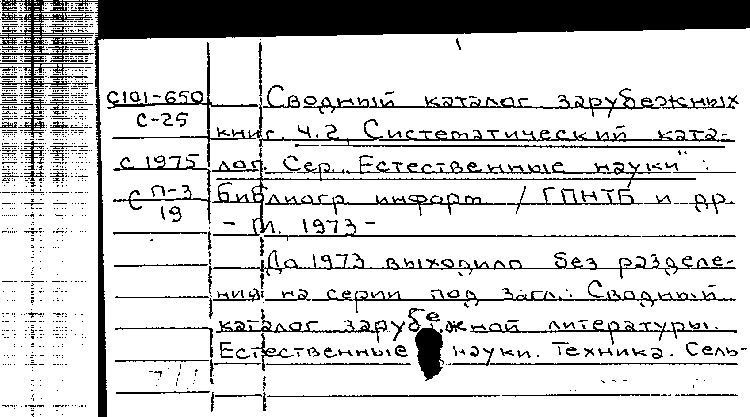 С101-650
С-25
С 1975
С П-3
19
Сводный каталог зарубежных
книг. Ч.2, Систематический ката-
лог. Сер. „Естественные науки":
Библиогр. информ / ГПНТБ и др.
- М. 1973 -
До 1973 выходило без разделе-
ния на серии под загл.: Сводный
каталог зарубежной литературы.
Естественные науки. Техника. Сель-